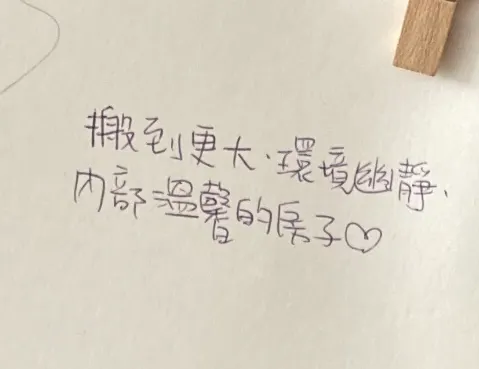 搬到更大、環境幽靜、
內部溫馨的房子♡